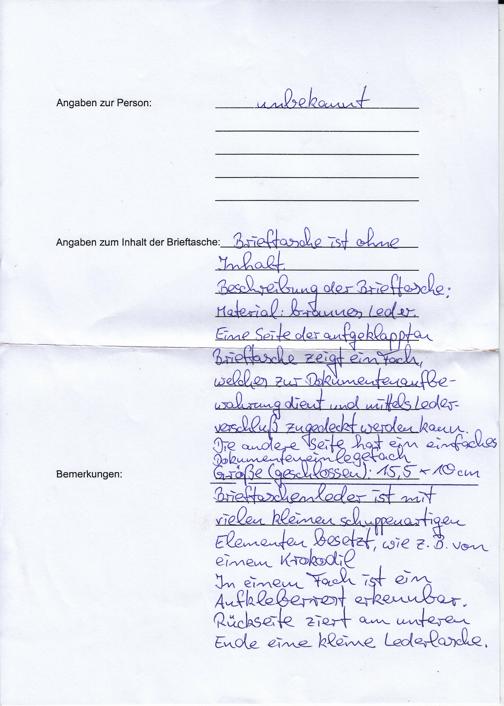 Angaben zur Person: unbekannt
Angaben zum Inhalt der Brieftasche: Brieftasche ist ohne
Inhalt.
Beschreibung der Brieftasche:
Material: braunes Leder.
Eine Seite der aufgeklappten
Brieftasche zeigt ein Fach,
welches zur Dokumentenaufbe-
wahrung dient und mittels Leder-
verschluß zugedeckt werden kann.
Die andere Seite hat ein einfaches
Dokumenteneinlegefach
Größe (geschlossen): 15,5 x 10 cm
Bemerkungen:
Brieftaschenleder ist mit
vielen kleinen schuppenartigen
Elementen besetzt, wie z.B. von
einem Krokodil
In einem Fach ist ein
Aufkleberrest erkennbar.
Rückseite ziert am unteren
Ende eine kleine Lederlasche.